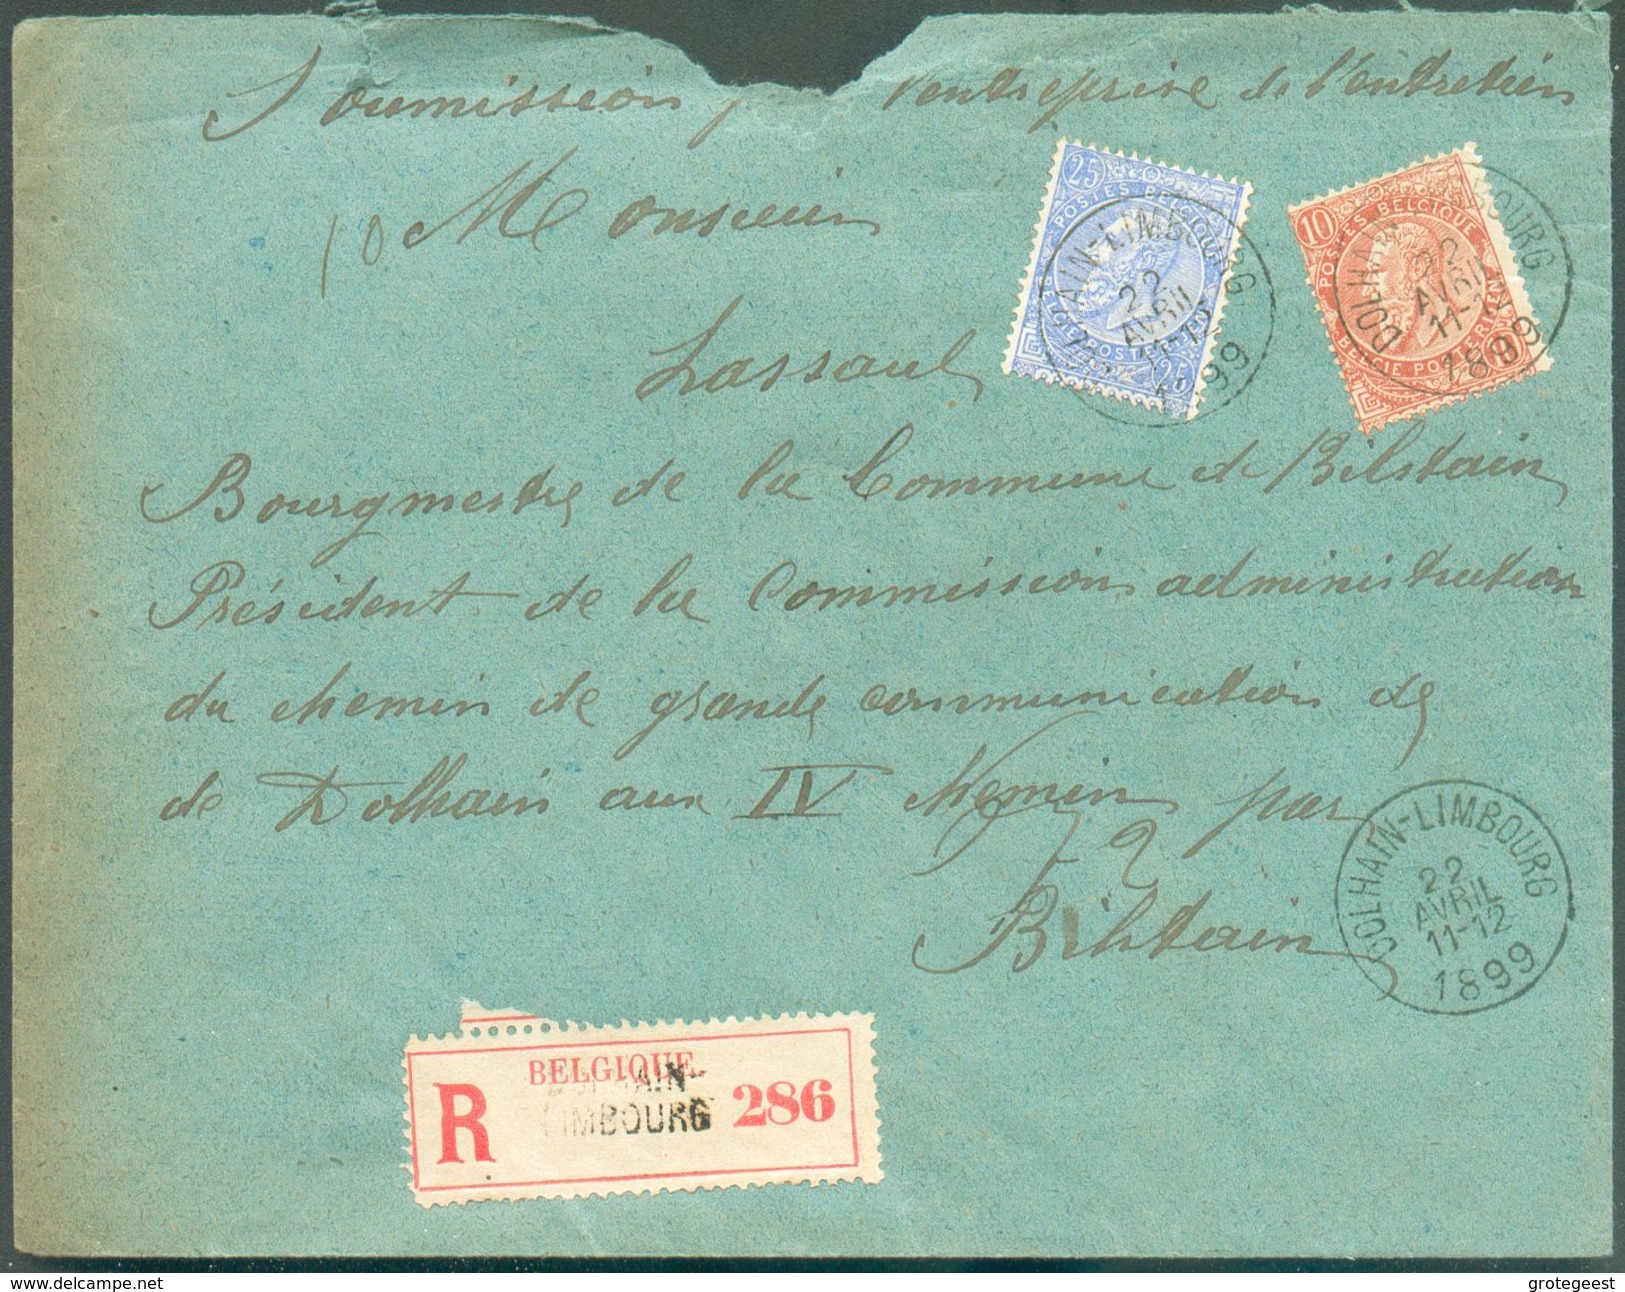 Soumission l'entreprise de l'entretien
10 Monsieur
Lassaul
Bourgmestre de la Commune de Bilstain
Président de la Commission administration
du chemin de grande communication de
de Dolhain aux IV Chemin par
Bilstain
25 25
POSTES BELGIQUE
BELGIE POSTERIJEN
DOLHAIN-LIMBOURG
22
AVRIL
11-12
1899
10
POSTES BELGIQUE
BELGIE POSTERIJEN
DOLHAIN-LIMBOURG
22
AVRIL
11-12
1899
DOLHAIN-LIMBOURG
22
AVRIL
11-12
1899
BELGIQUE
R DOLHAIN-
LIMBOURG 286
delcampe.net
grotegeest